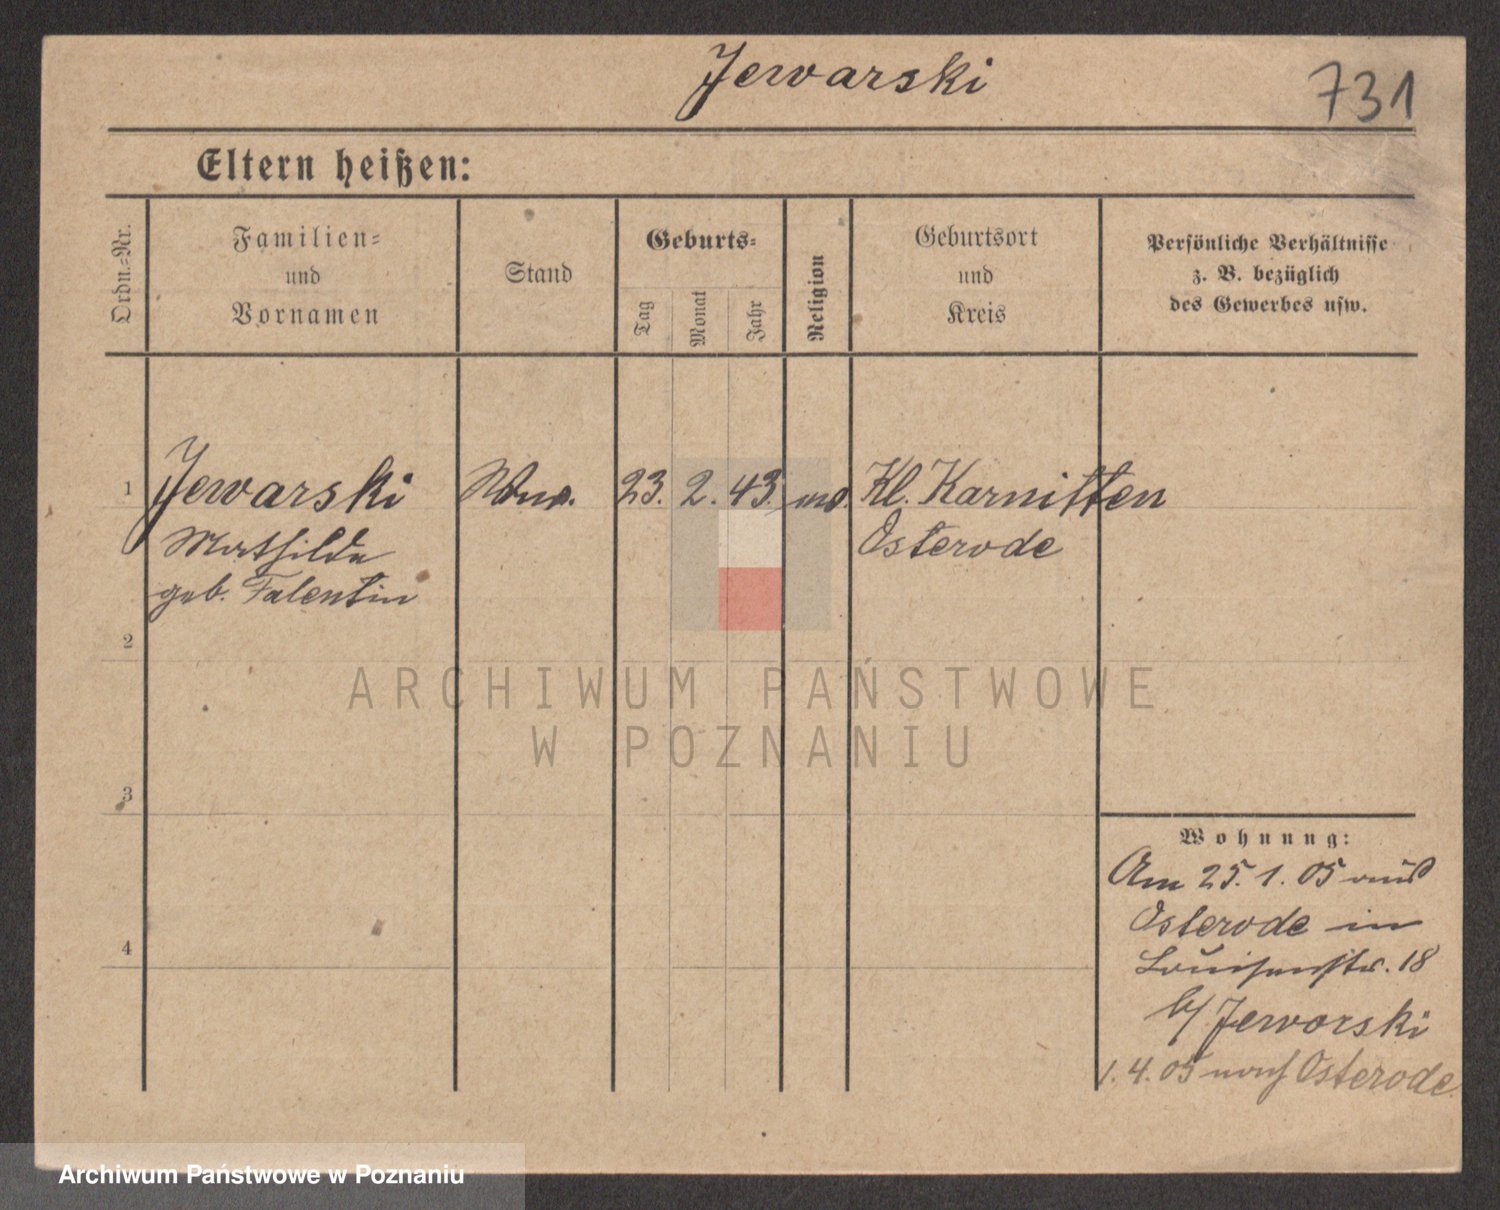 Jewarski
731
Eltern heißen:
Ordn.-Nr.
Familien-
und
Vornamen
Stand
Geburts-
Tag
Monat
Jahr
Religion
Geburtsort
und
Kreis
Persönliche Verhältnisse
z. B. bezüglich
des Gewerbes usw.
1
Jewarski
Mathilde
geb. Falentin
Wwe.
23. 2. 43.
Kl. Karnitten
Osterode
2
3
4
ARCHIWUM PAŃSTWOWE
W POZNANIU
Wohnung:
Am 25. 1. 05 aus
Osterode in
Louisenstr. 18
b/ Jeworski
1. 4. 05 nach Osterode.
Archiwum Państwowe w Poznaniu